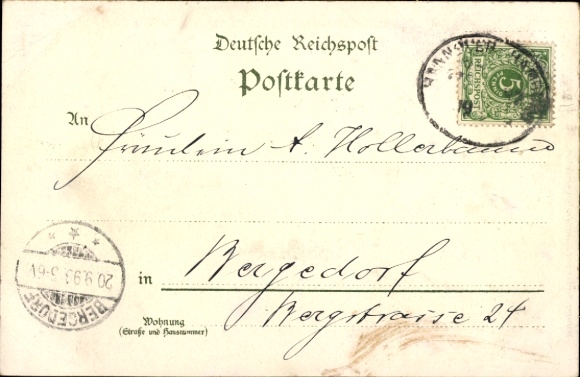 Deutsche Reichspost
Postkarte
REICHSPOST
5
An Fräulein A. Hollerbaum
20.9.93 5-6N
BERGEDORF
in Bergedorf
Wohnung
(Straße und Hausnummer)
Bergstrasse 24